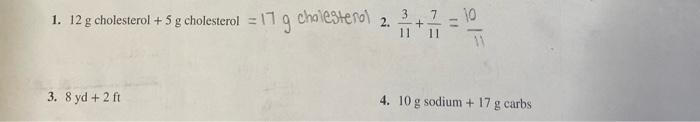 1. 12 g cholesterol + 5 g cholesterol = 17 g cholesterol
2. 3/11 + 7/11 = 10/11
3. 8 yd + 2 ft
4. 10 g sodium + 17 g carbs